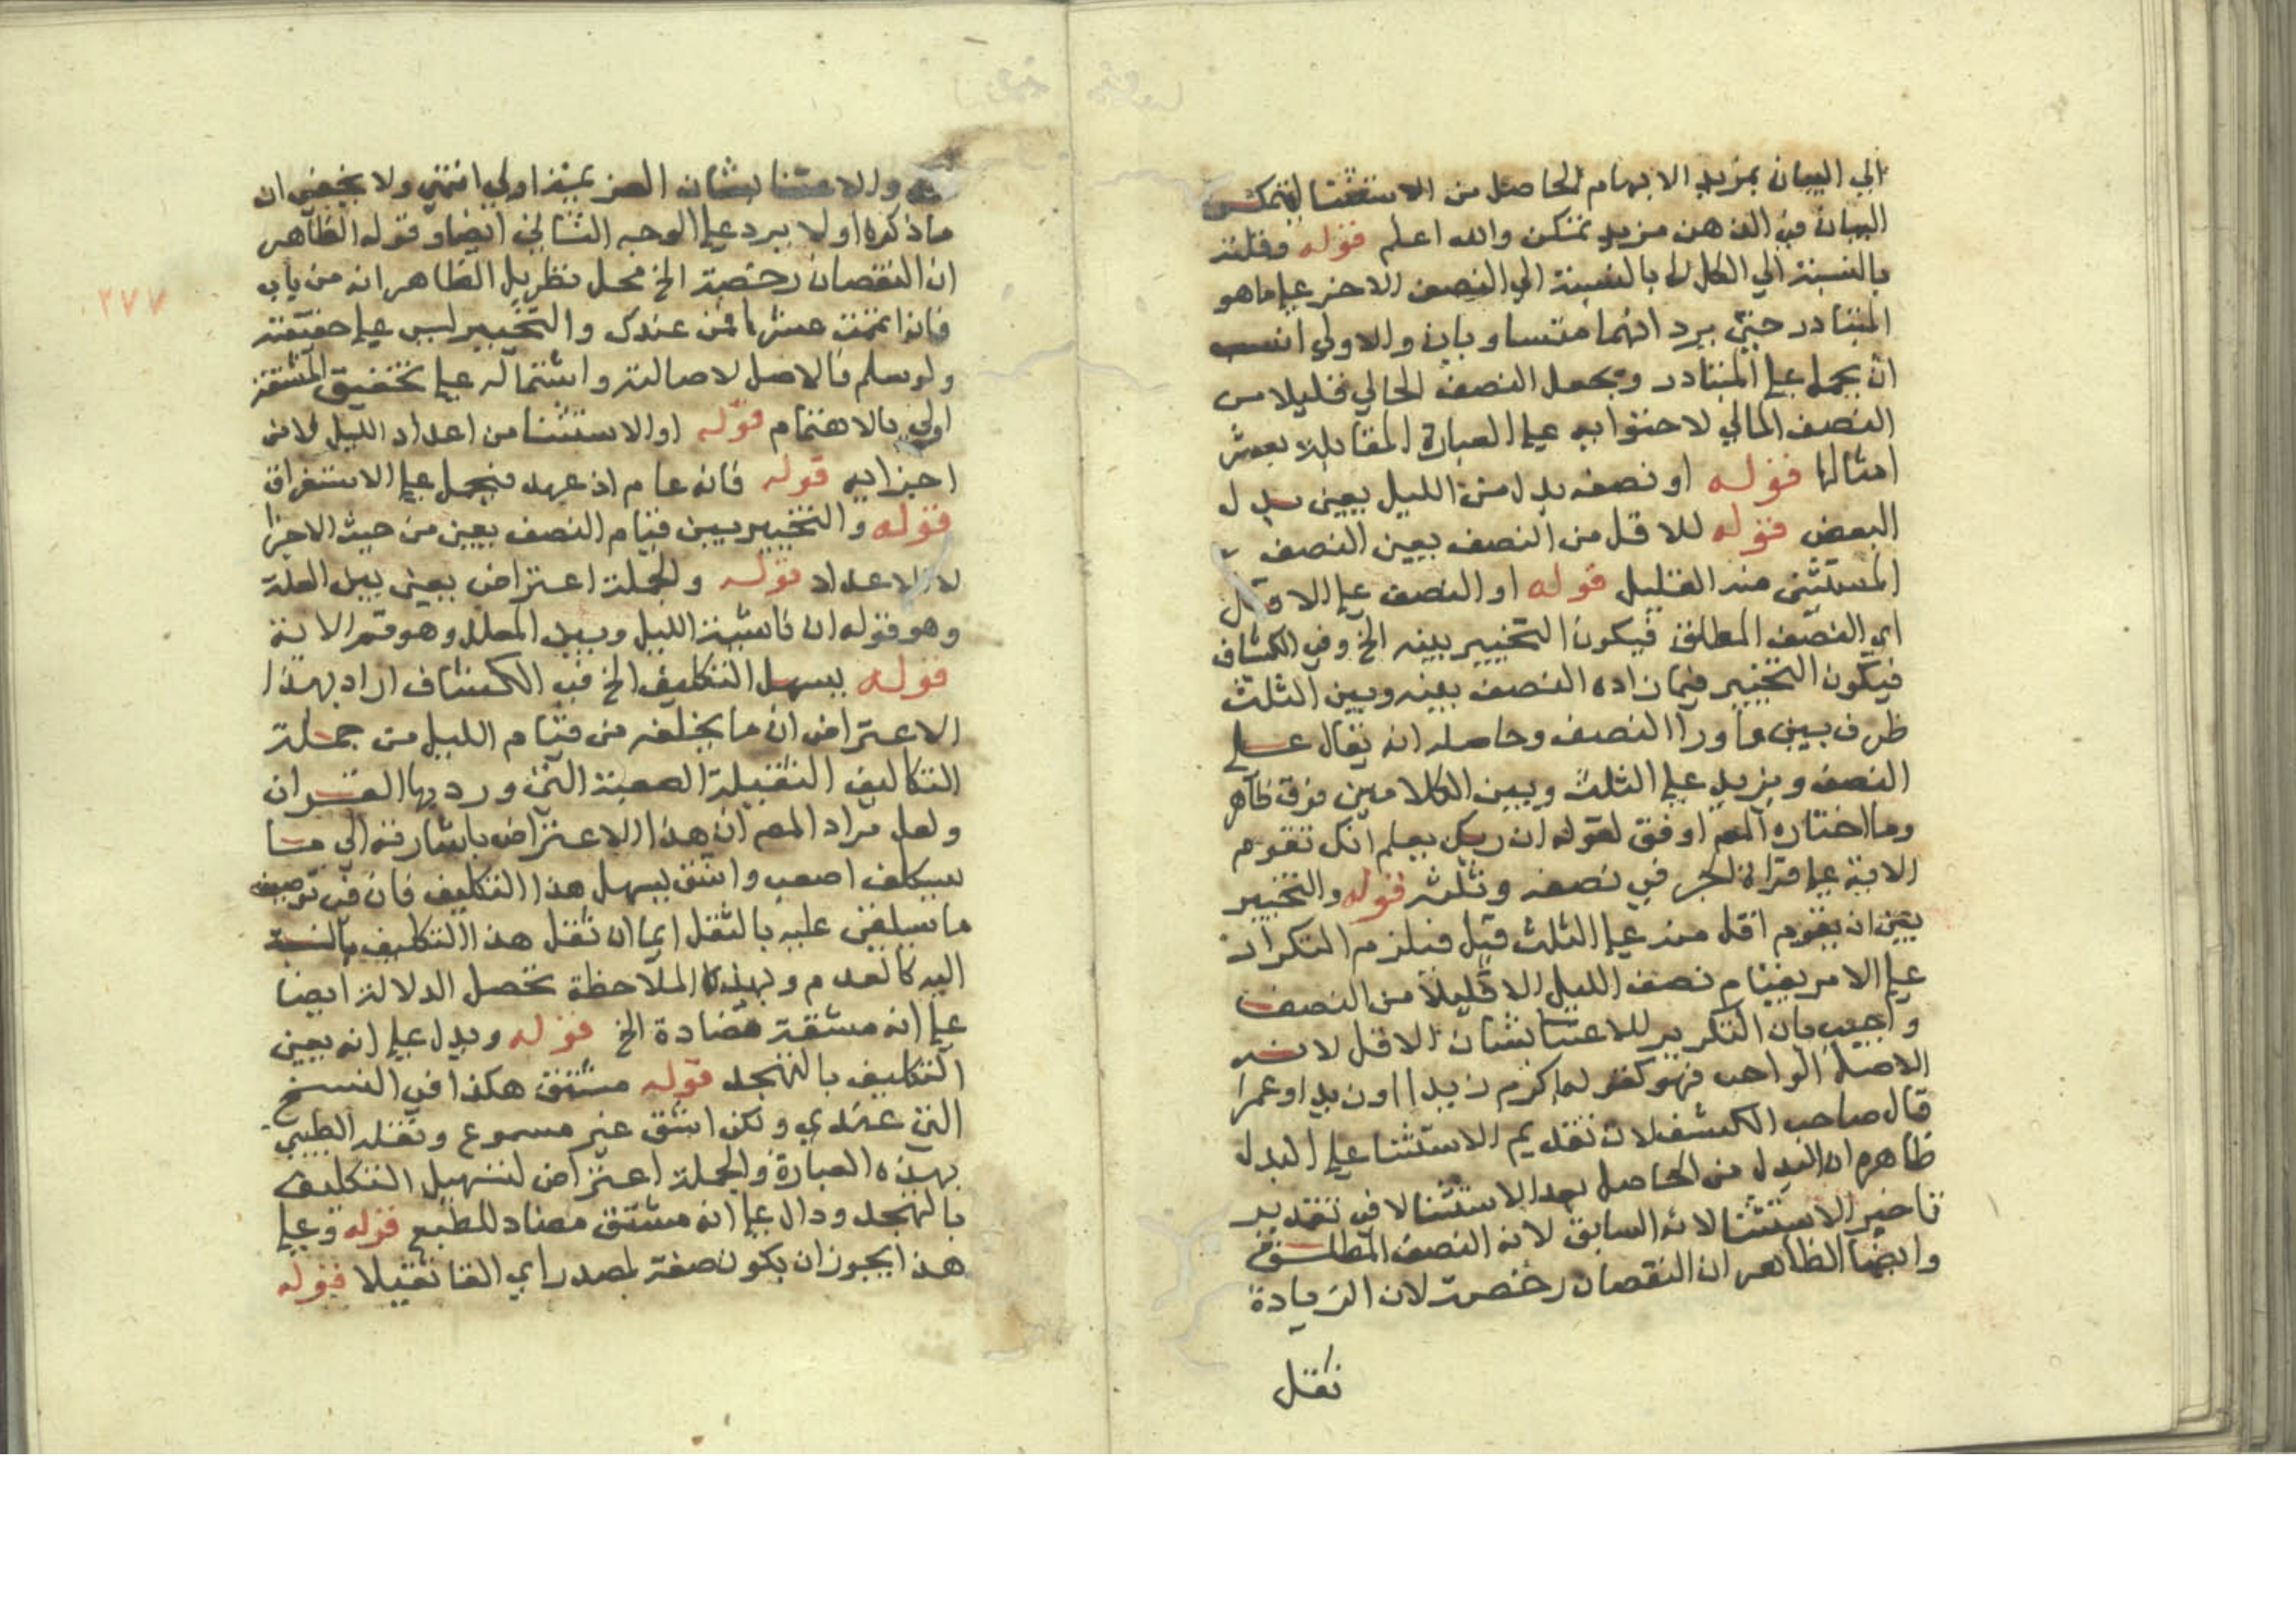 الي البيان بمزيد الابهام الحاصل من الاستثنا ليتمكن
البيان في الذهن مزيد تمكن والله اعلم قوله وقلته
بالنسبة الي الكل لا بالنسبة الي النصف الاخر علي ما هو
المتبادر حتي يرد انهما متساويان والاولي انسب
ان يحمل علي المتبادر ويجعل النصف الخالي قليلا من
النصف المالي لاحتوايه علي العبارة المقابلة بعشر
امثالها قوله او نصفه بدل من الليل يعني بدل
البعض قوله للاقل من النصف يعني النصف
المستثني منه القليل قوله او النصف علي الاقل
اي النصف المطلق فيكون التخيير بينه الخ وفي الكشاف
فيكون التخيير فيما زاده النصف بينه وبين الثلث
ظرف بين وما ورا النصف وحاصله انه يقال علي
النصف ويزيد علي الثلث وبين الكلامين فرق ظاهر
وما اختاره المص اوفق لقوله ان ربك يعلم انك تقوم
الاية علي قراة الجر في نصفه وثلثه قوله والتخيير
بين ان يقوم اقل منه علي الثلث قيل فيلزم التكرار
علي الامر بقيام نصف الليل الا قليلا من النصف
واجيب بان التكرير للاعتنا بشان الاقل لانه
الاصل الواجب فهو كقولهم اكرم زيدا او زيدا وعمرا
قال صاحب الكشف لان تقديم الاستثنا علي البدل
ظاهره ان البدل من الحاصل بعد الاستثنا لا في تقدير
تاخير الاستثنا لانه السابق لانه النصف المطلق
وايضا الظاهر ان النقصان رخصة لان الزيادة
نفل
والاعتنا بشان العزيمة اولي انتهي ولا يخفي ان
ما ذكره اولا يرد علي الوجه الثاني ايضا وقوله الظاهر
ان النقصان رخصة الخ محل نظر بل الظاهر انه من باب
فان اتممت عشرا فمن عندك والتخيير ليس علي حقيقته
ولو سلم فالاصل لاصالته واشتماله علي تخفيف المشقة
اولي بالاهتمام قوله او الاستثنا من اعداد الليل لا من
اجزايه قوله فانه عام اذ عهد فيحمل علي الاستغراق
قوله والتخيير بين قيام النصف يعني من حيث الاجزا
لا الاعداد قوله والجملة اعتراض يعني بين العلة
وهو قوله ان ناشية الليل وبين المعلل وهو قم الاية
قوله يسهل التكليف الخ في الكشاف اراد بهذا
الاعتراض ان ما يكلفه من قيام الليل من جملة
التكاليف الثقيلة الصعبة التي ورد بها القران
ولعل مراد المص ان هذا الاعتراض باشارته الي ما
سيكلف اصعب واشق يسهل هذا التكليف فان في توصيفه
ما سيلقي عليه بالثقل ايما ان ثقل هذا التكليف بالنسبة
اليه كالعدم وبهذه الملاحظة تحصل الدلالة ايضا
علي انه مشقة مضادة الخ قوله ويدل علي انه يعني
التكليف بالتهجد قوله مشق هكذا في النسخ
التي عندي ولكن اشق غير مسموع ونقله الطيبي
بهذه العبارة والجملة اعتراض لتسهيل التكليف
بالتهجد ودال علي انه مشق مضاد للطبع قوله وعلي
هذا يجوز ان يكون صفة لمصدر اي القا ثقيلا قوله
٢٧٧